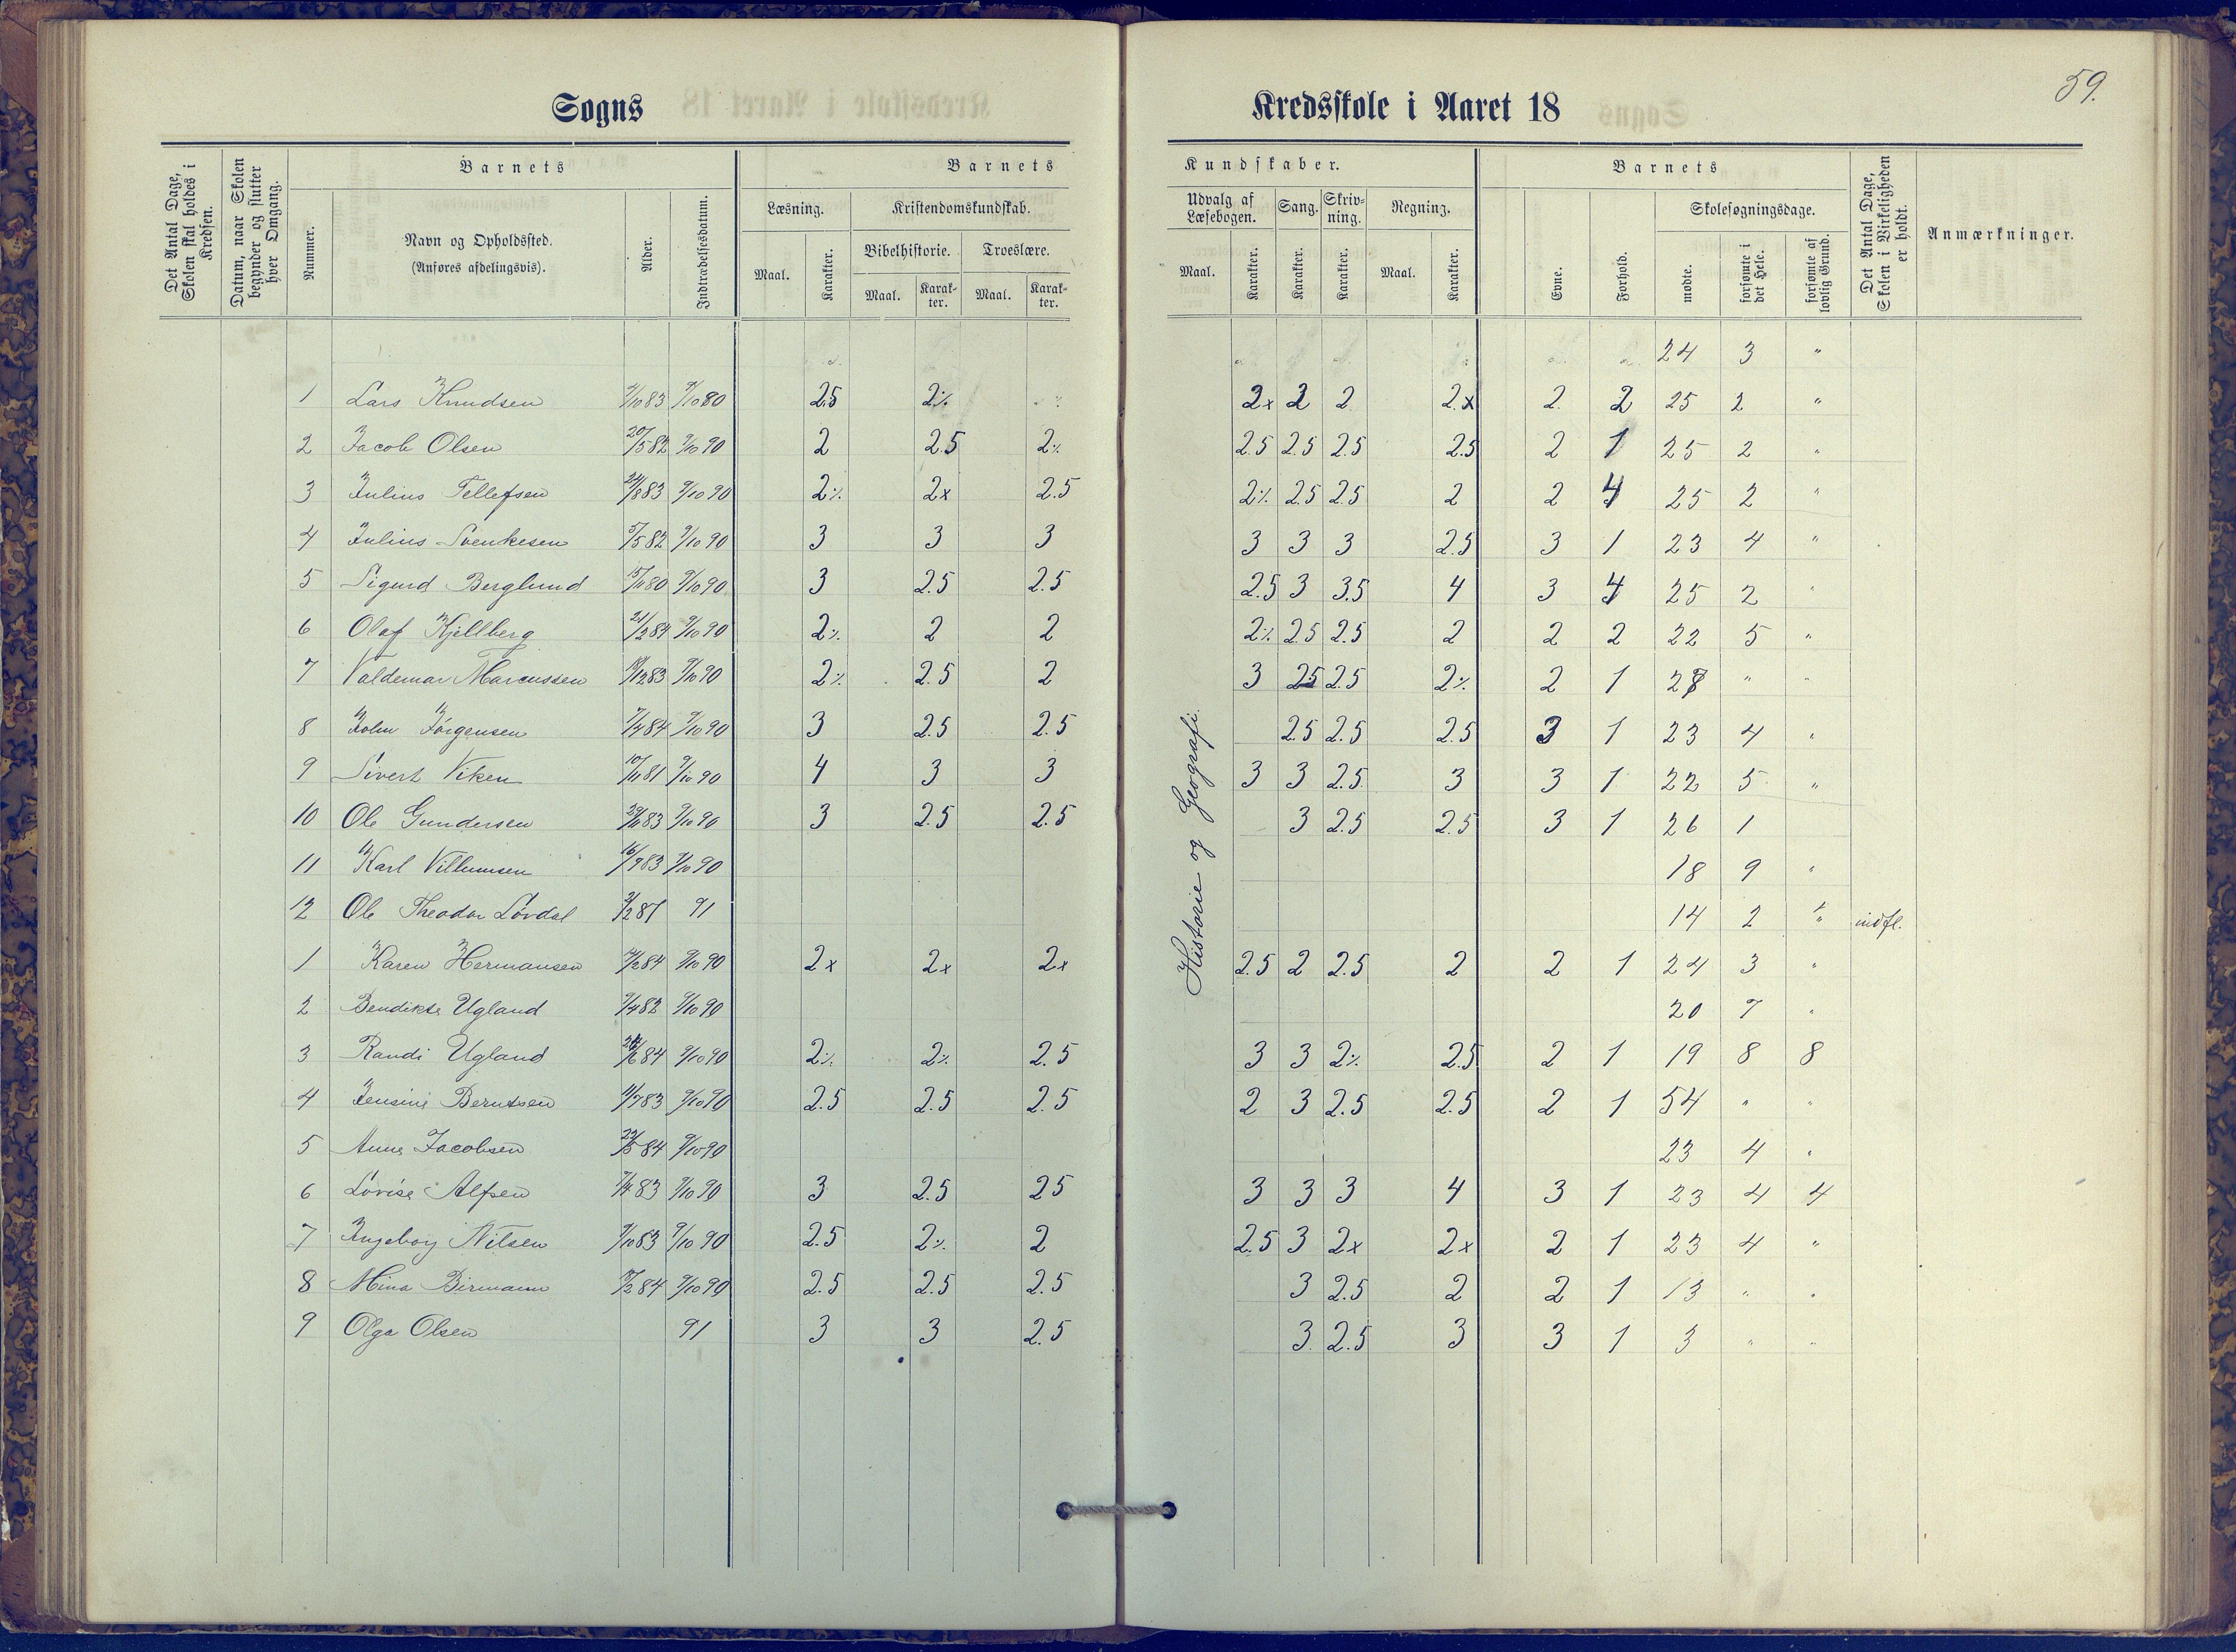 59.
Sogns Kredsskole i Aaret 18
Det Antal Dage, Skolen skal holdes i Kredsen.
Datum, naar Skolen begynder og slutter hver Omgang.
Barnets
Nummer.
Navn og Opholdssted.
(Anføres afdelingsvis).
Alder.
Indtrædelsesdatum.
Barnets Kundskaber.
Læsning.
Maal. Karakter.
Kristendomskundskab.
Bibelhistorie. Troeslære.
Maal. Karakter. Maal. Karakter.
Udvalg af Læsebogen.
Maal. Karakter.
Sang. Karakter.
Skrivning. Karakter.
Regning.
Maal. Karakter.
Barnets
Evne.
Forhold.
Skolesøgningsdage.
mødte.
forsømte i det Hele.
forsømte af lovlig Grund.
Det Antal Dage, Skolen i Virkeligheden er holdt.
Anmærkninger.
Historie og Geografi.
24 3 "
1 Lars Knudsen 9/10 80 2.5 2% 2x 2 2 2x 2 2 25 2 "
2 Jacob Olsen 20/5 82 9/10 90 2 2.5 2% 2.5 2.5 2.5 2.5 2 1 25 2 "
3 Julius Tellefsen 24/8 83 9/10 90 2% 2x 2.5 2% 2.5 2.5 2 2 4 25 2 "
4 Julius Svenkesen 5/5 82 9/10 90 3 3 3 3 3 3 2.5 3 1 23 4 "
5 Sigurd Berglund 15/11 80 9/10 90 3 2.5 2.5 2.5 3 3.5 4 3 4 25 2 "
6 Olaf Kjellberg 21/2 84 9/10 90 2% 2 2 2% 2.5 2.5 2 2 2 22 5 "
7 Valdemar Marcussen 9/10 90 2% 2.5 2 3 2.5 2.5 2% 2 1 27 " "
8 John Jörgensen 7/4 84 9/10 90 3 2.5 2.5 2.5 2.5 2.5 3 1 23 4 "
9 Sivert Viken 10/11 81 9/10 90 4 3 3 3 3 2.5 3 3 1 22 5 "
10 Ole Gundersen 9/10 90 3 2.5 2.5 3 2.5 2.5 3 1 26 1
11 Karl Villumsen 16/9 83 9/10 90 18 9 "
12 Ole Theodor Lövdal 91 14 2 " indfl.
1 Karen Hermansen 9/10 90 2x 2x 2x 2.5 2 2.5 2 2 1 24 3 "
2 Bendikte Ugland 9/4 82 9/10 90 20 7 "
3 Randi Ugland 9/10 90 2% 2% 2.5 3 3 2% 2.5 2 1 19 8 8
4 Jensine Berntsen 11/7 83 9/10 90 2.5 2.5 2.5 2 3 2.5 2.5 2 1 54 " "
5 Anne Jacobsen 9/10 90 23 4 "
6 Lovise Alfsen 9/10 90 3 2.5 2.5 3 3 3 4 3 1 23 4 4
7 Ingeborg Nilsen 9/10 83 9/10 90 2.5 2% 2 2.5 3 2x 2x 2 1 23 4 "
8 Mina Birmann 9/10 90 2.5 2.5 2.5 3 2.5 2 2 1 13 " "
9 Olga Olsen 91 3 3 2.5 3 2.5 3 3 1 3 " "